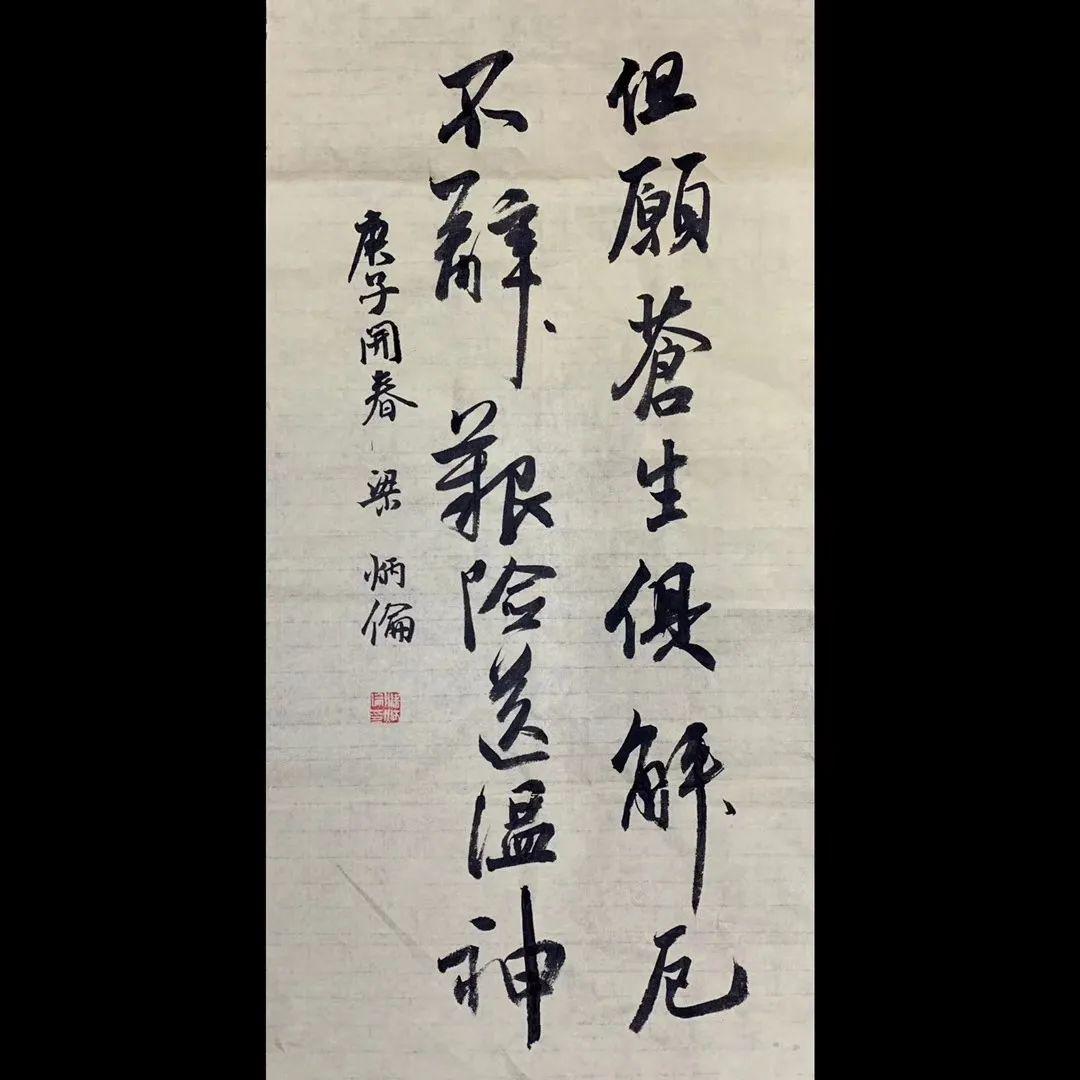 但願蒼生俱解厄
不辭艱險送溫神
庚子開春 梁炳倫